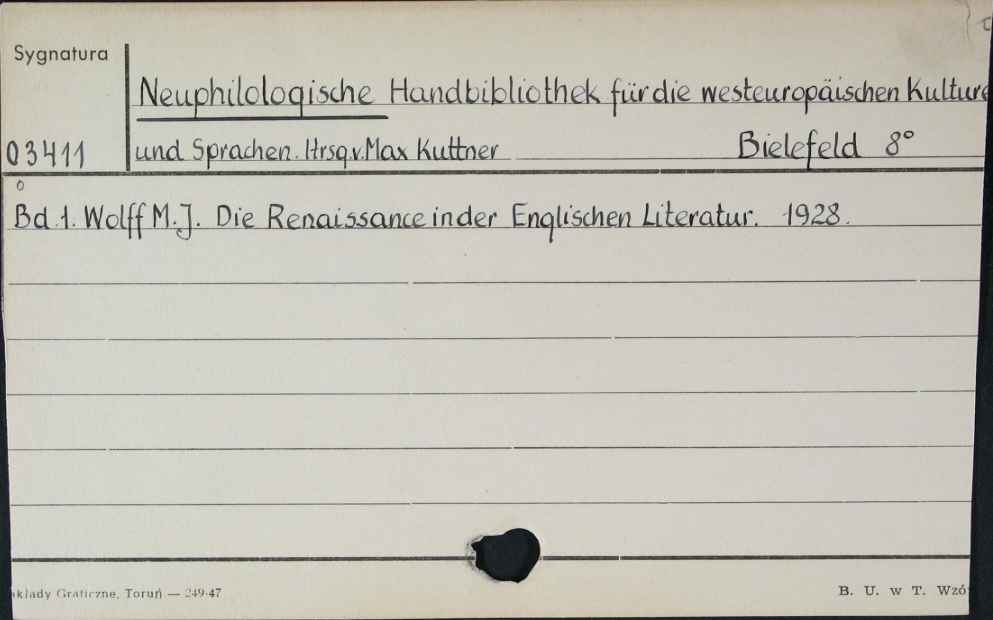 Sygnatura
Neuphilologische Handbibliothek für die westeuropäischen Kulture
03411 und Sprachen. Hrsg.v. Max Kuttner Bielefeld 8°
o
Bd.1. Wolff M.J. Die Renaissance in der Englischen Literatur. 1928.
kłady Graficzne, Toruń — 249-47
B. U. w T. Wzó